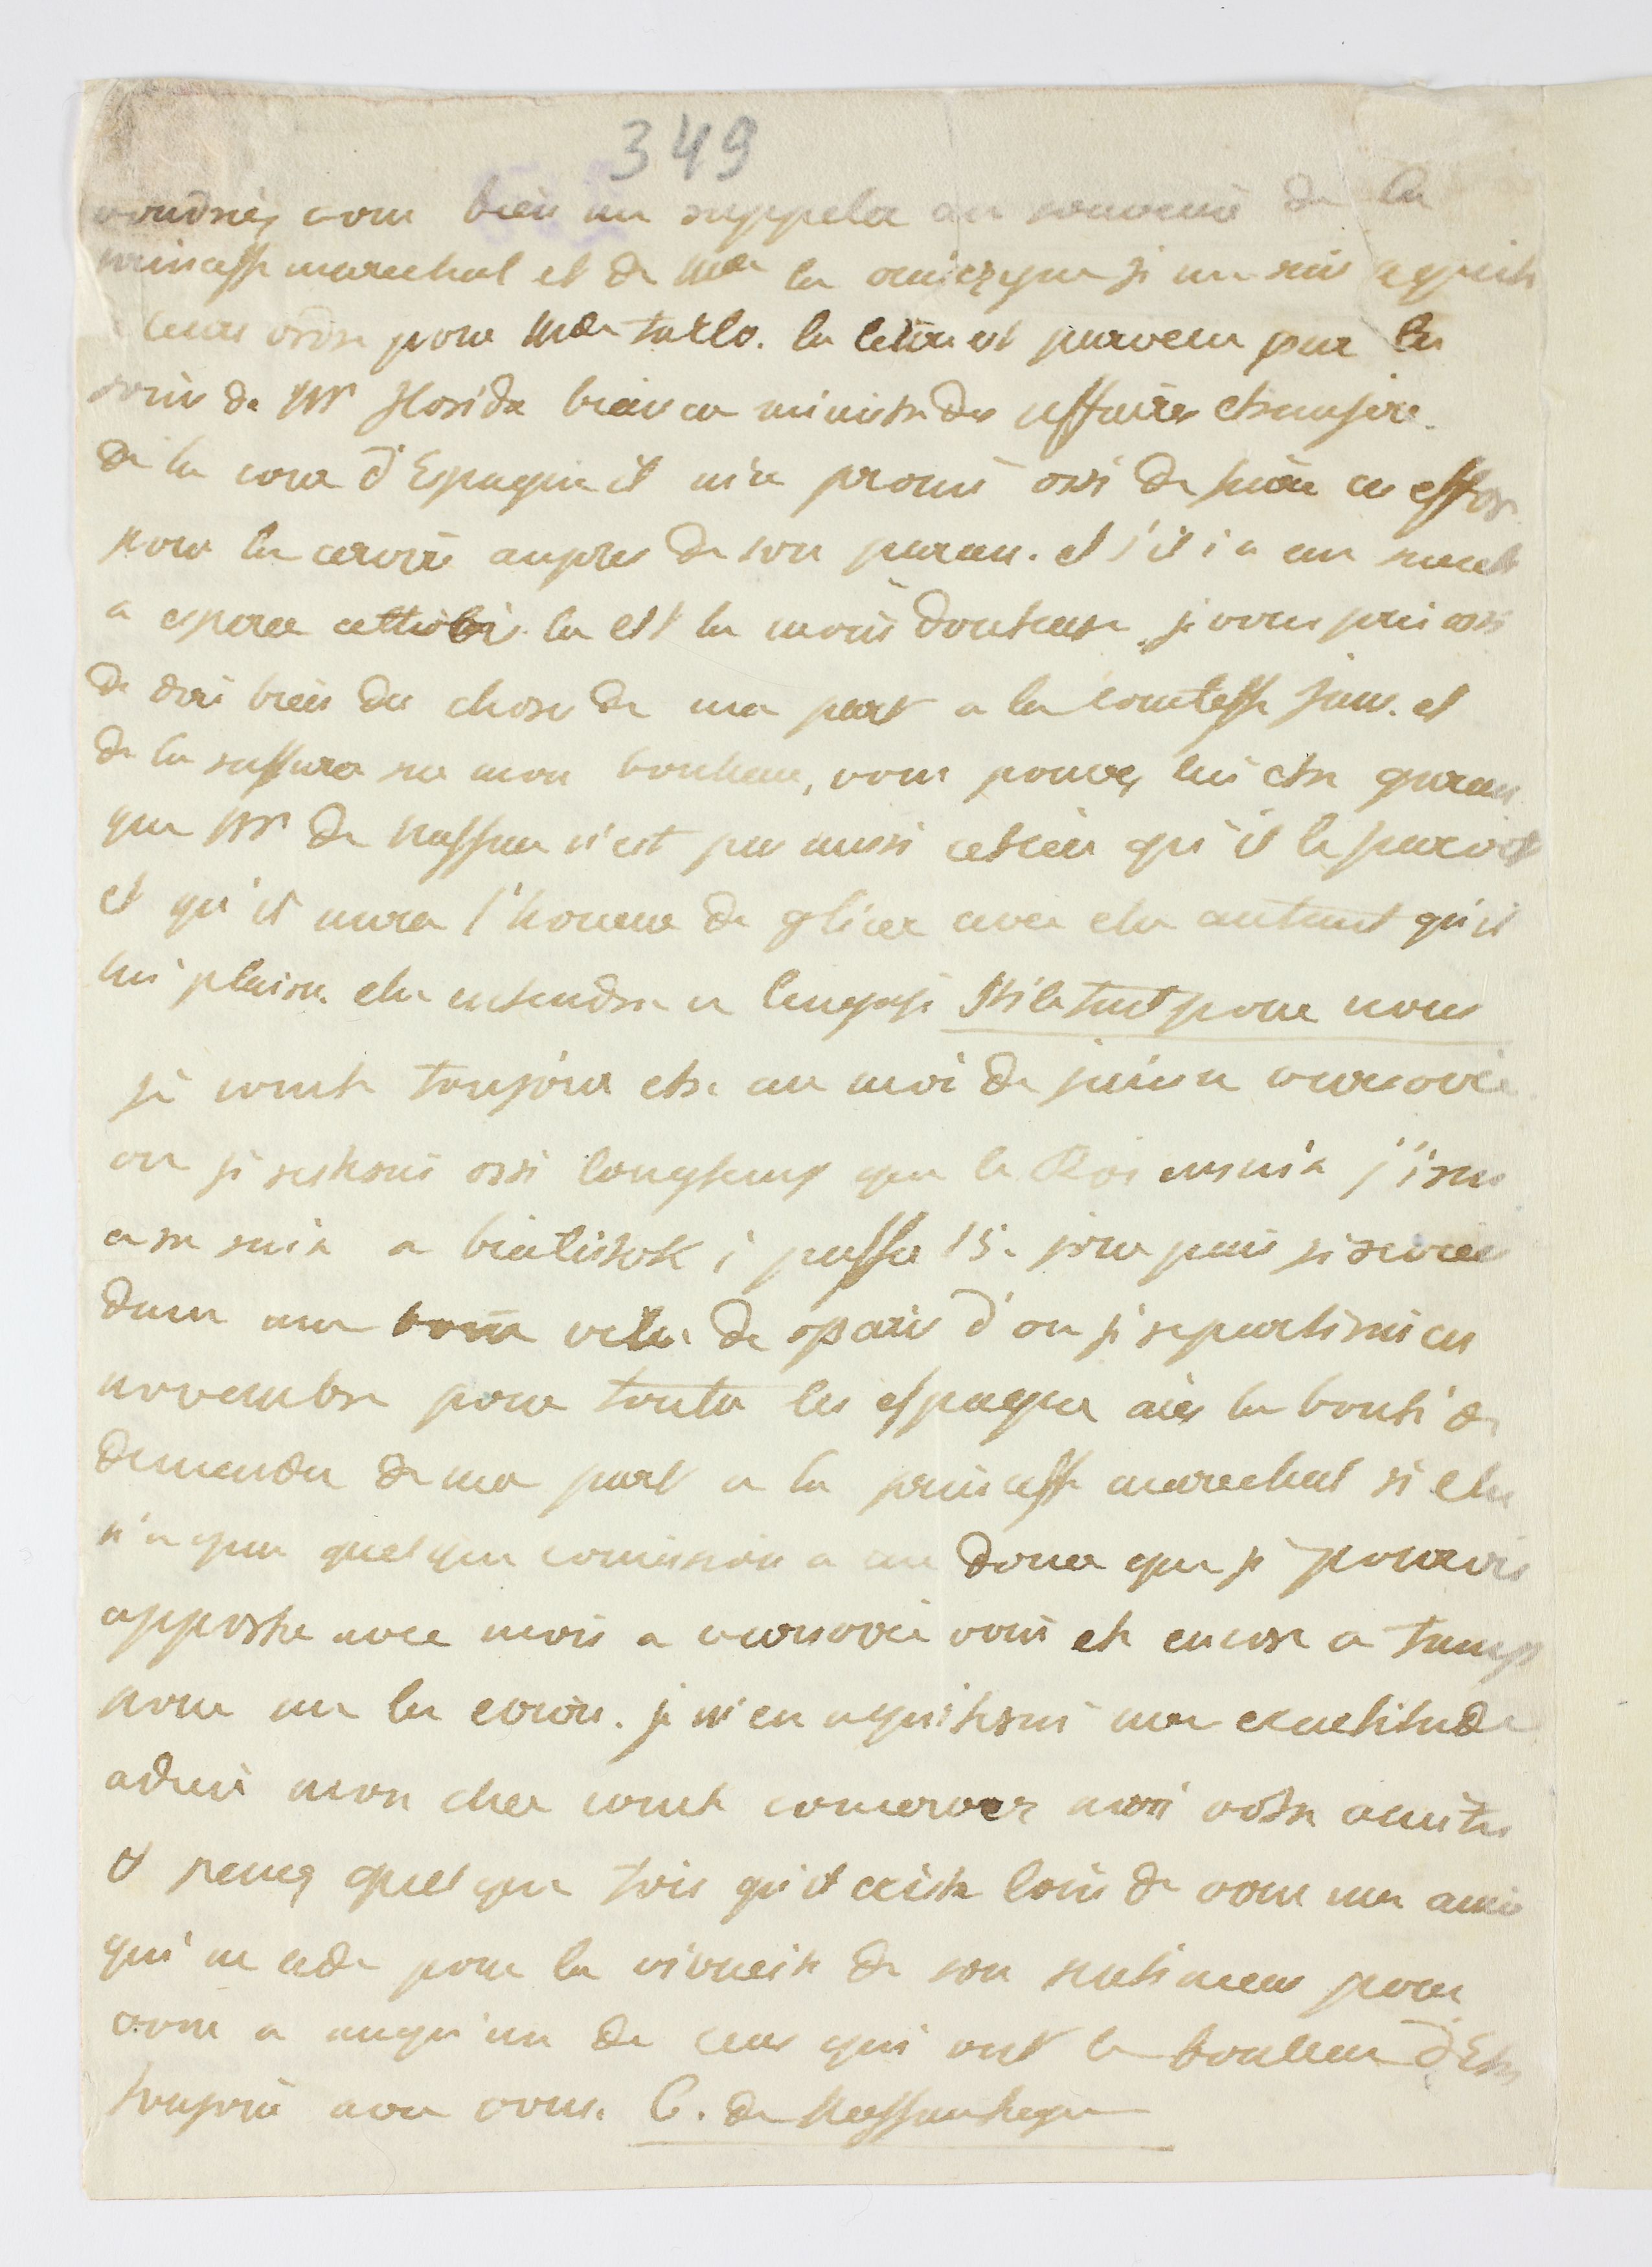 349
voudriés vous bien me rappeler au souvenir de la
princesse marechal et de Mde la
leurs ordre pour Mde tarlo. la letre est parvenu par les
soins de Mr florida bianca ministre des affaires etrangere.
de la cour d'Espagne il m'a promi ossi de faire ces effor
pour la cervire aupres de son paran. et s'il i a un succes
a esperer cette la est la moins douteuse. je vous prie ossi
de dire bien des chose de ma part a la comtesse jeux. et
de la rassurer sur mon bonheur, vous pouvez lui etre garan
que Mr de nassau n'est pas aussi qu'il le paroit
et qu'il aura l'honeur de avec ele autant qu'il
lui plaira. ele entendra ce langage pour nous
je conte toujour etre au moi de juin a varsovie
ou je resterai ossi longtemp que le Roi ensuite j'irai
a sa suite a bialistok i passer 15. jour puis je serai
dans me de paris d'ou je repartirai en
novembre pour toute les espagne aiés la bonté de
demander de ma part a la princesse marechal si ele
n'a quelque comission a me doner que je pourois
apporter avec moi a varsovie vous ete encore a temp
pour me les ecrire. je m'en aquiterai avec exactitude
adieu mon cher comte concerver moi votre amitié
et pencez quelque fois qu'il existe loin de vous une amie
qui ne cede pour la vivacité de son sentimens pour
vous a auqu'un de ceux qui ont le bonheur d'Etre
toujour avec vous. C. de Nassausiegen